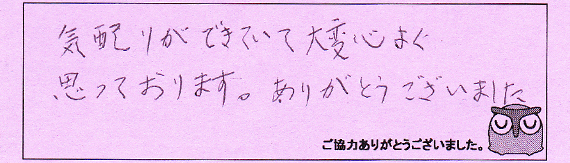 気配りができていて大変心よく
思っております。ありがとうございました
ご協力ありがとうございました。